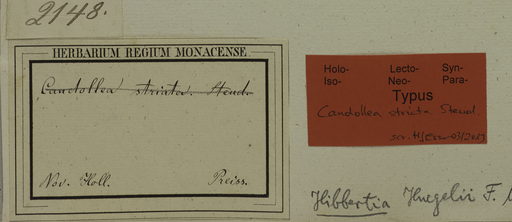 2148.
HERBARIUM REGIUM MONACENSE
Candollea striata. Steud.
Nov. Holl. Preiss.
Holo- Lecto- Syn-
Iso- Neo- Para-
Typus
Candollea striata Steud.
03/2013
Hibbertia Huegelii F.